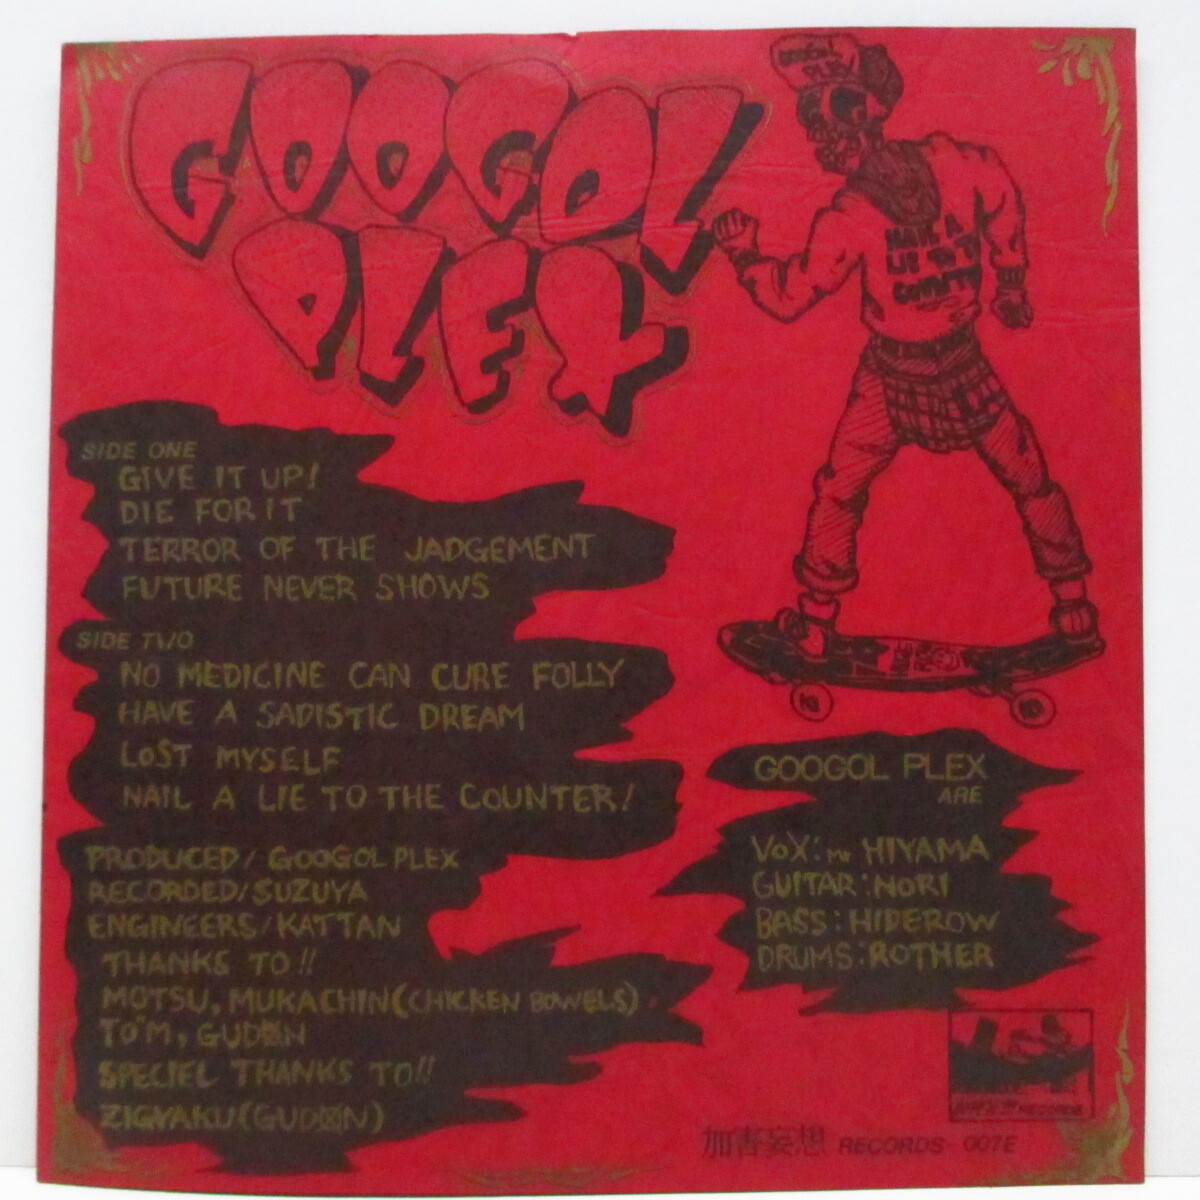 GOOGOL
PLEX
GOOGOL
PLEX
NAIL A
LIE TO T
COUNTE
SIDE ONE
GIVE IT UP!
DIE FOR IT
TERROR OF THE JADGEMENT
FUTURE NEVER SHOWS
SIDE TWO
NO MEDICINE CAN CURE FOLLY
HAVE A SADISTIC DREAM
LOST MYSELF
NAIL A LIE TO THE COUNTER!
PRODUCED/GOOGOL PLEX
RECORDED/SUZUYA
ENGINEERS/KATTAN
THANKS TO!!
MOTSU, MUKACHIN(CHICKEN BOWELS)
TO'M, GUDØN
SPECIEL THANKS TO!!
ZIGYAKU(GUDØN)
GOOGOL PLEX
ARE
VOX: mr HIYAMA
GUITAR: NORI
BASS: HIDEROW
DRUMS: ROTHER
RECORDS
加害妄想 RECORDS 007E